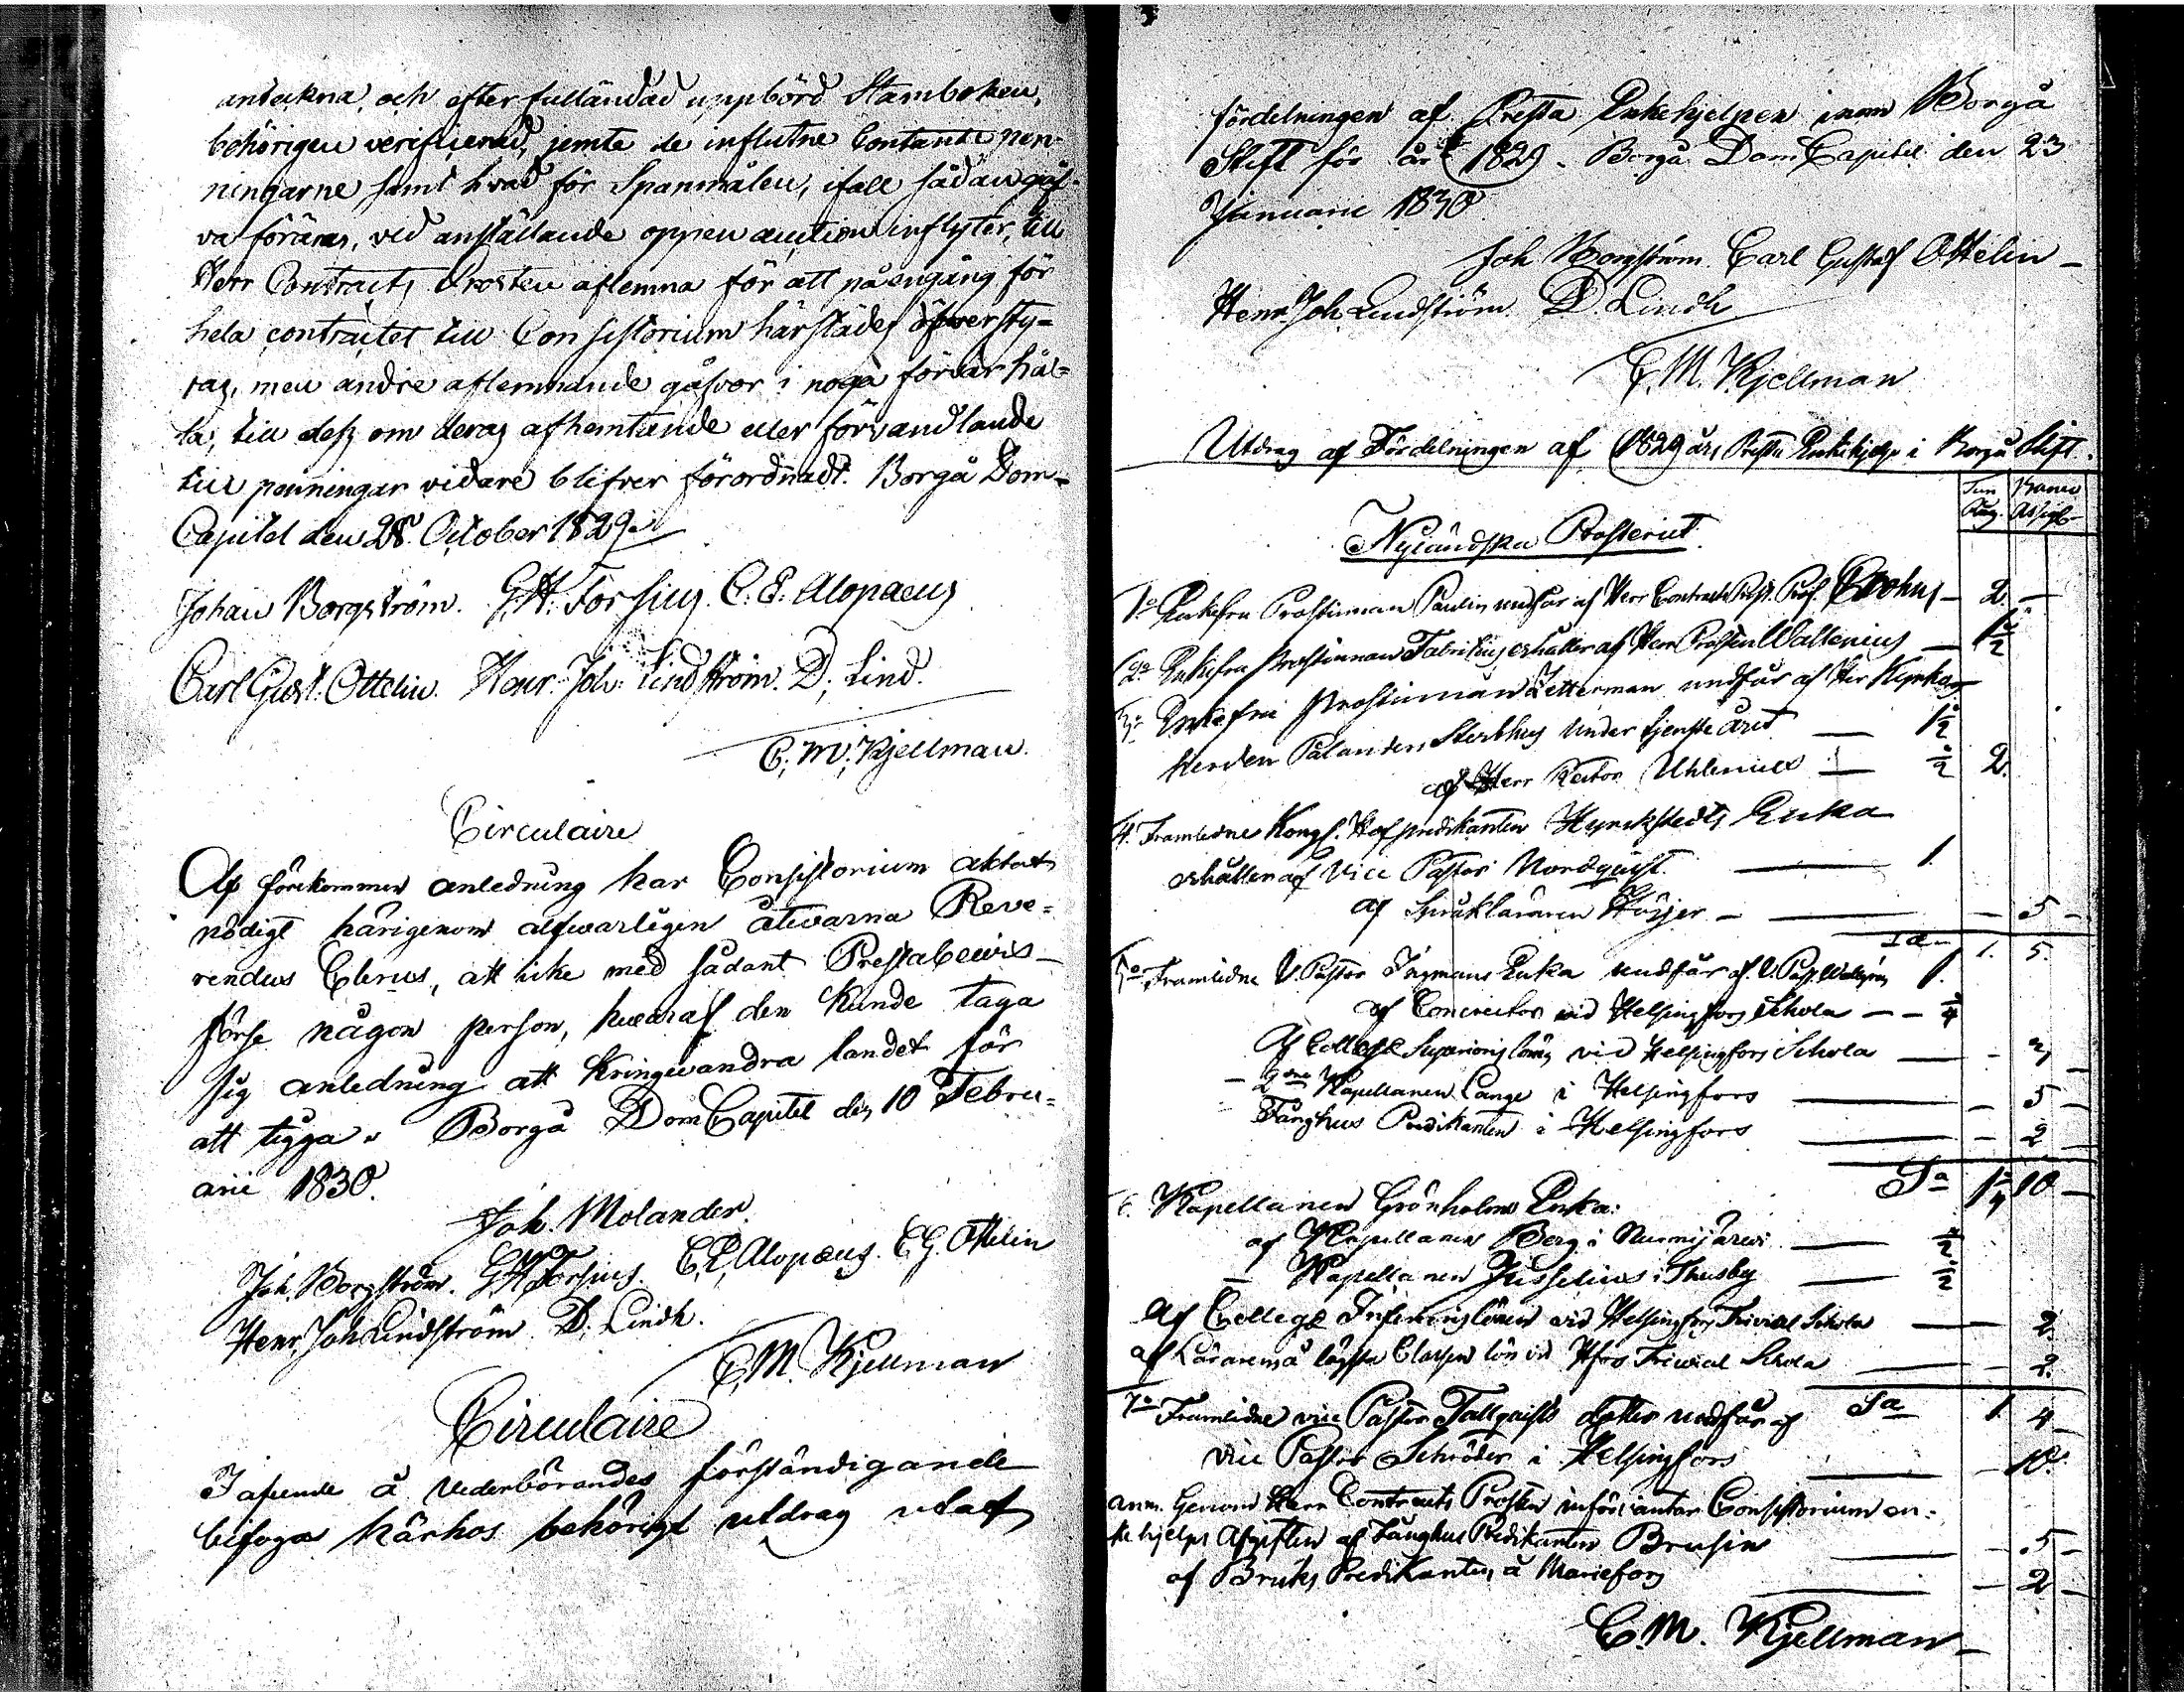 anteckna, och efter fulländad uppbörd Stamboken,
behörigen verifierad, jemte de influtne Contante pen-
ningarne samt hvad för Spanmålen, ifall sådan gåf-
va föräras, vid anställande öppen auction inflyter, till
Herr Contracts Prosten aflemna för att på engång för
hela contractet till Consistorium härstädes öfversty-
ras, men andre aflemnande gåfvor i noga förvar hål-
la, till dess om deras afhemtande eller förvandlande
till penningar vidare blifver förordnadt. Borgå Dom-
Capitel den 28. October 1829.
Johan Borgström. G.H. Forsius. C.E. Alopaeus
Carl Gust. Ottelin. Henr. Joh. Lindström. D. Lind.
C.M. Kjellman.
Circulaire
Af förekommen anledning har Consistorium aktat
nödigt härigenom alfwarligen åtwarna Reve-
rendus Clerus, att icke med sådant Prestabewis
förse någon person, hwaraf den kunde taga
sig anledning att kringwandra landet för
att tigga. Borgå DomCapitel den 10 Febru-
arii 1830.
Joh. Molander.
Joh. Borgström. G.H. Forsius. C.E. Alopæus. C.G. Ottelin
Henr. Joh. Lindström. D. Lindh.
C.M. Kjellman
Circulaire
I afseende å Vederbörandes förständigande
bifogas härhos behörigt utdrag utaf
fördelningen af Presta Enkehjelpen inom Borgå
Stift för år 1829. Borgå DomCapitel den 23
Januarii 1830
Joh Borgström. Carl Gustaf Ottelin
Henr. Joh. Lindström D. Lindh
C.M. Kjellman
Utdrag af Fördelningen af 1829 års Presta Enkehjelp i Borgå Stift.
Tun Råg. Banco Assign.
Nyländska Prosteriet.
1o Enkefru Prostinnan Paulin undfår af Herr Contracts Prost. Prof. Crohns 2. —
2o Enkefru Prostinnan Fabritius erhåller af Herr Prosten Wallenius — 1½
3o Enkefru Prostinnan Zetterman undfår af Herr Kyrko
herden Palanders Sterbhus under tjenste året — 1½
af Herr Rector Uhlenius — ½ 2.
4. Framledne Kongl. Hofpredikanten Hynickstedts Enka
erhåller af Vice Pastor Nordquist. — 1.
af Språkläraren Höijer — — 5 —
Sa — 1. 5.
5o Framledne V. Pastor Ingmans Enka undfår af V. Past. Wallgren 1.
af Conrector vid Helsingfors Schola — ¼
Af Collega Superioris lön vid Helsingfors Schola — 3
— 2dre Kapellanen Lange i Helsingfors — 5 —
Fånghus Predikanten i Helsingfors — 2
Sa 1¼ 10 —
6. Kapellanen Grönholms Enka:
af Kapellanen Berg i Nurmijärwi — ½
— Kapellanen Jusselius i Thusby — ½
Af Collega Inferioris lönen vid Helsingfors Trivial Schola — 2.
af Lärarens å lägsta Classen lön vid Hfors Trivial Schola — 2.
Sa 1 4
7o Framledne vice Pastor Tallquists dotter undfår af
Vice Pastor Schröder i Helsingfors — 10.
Anm. Genom Herr Contracts Prosten införväntar Consistorium en-
ke hjelps Afgiften af Fånghus Predikanten Brusin — 5 —
af Bruks Predikanten å Mariefors — 2 —
C.M. Kjellman